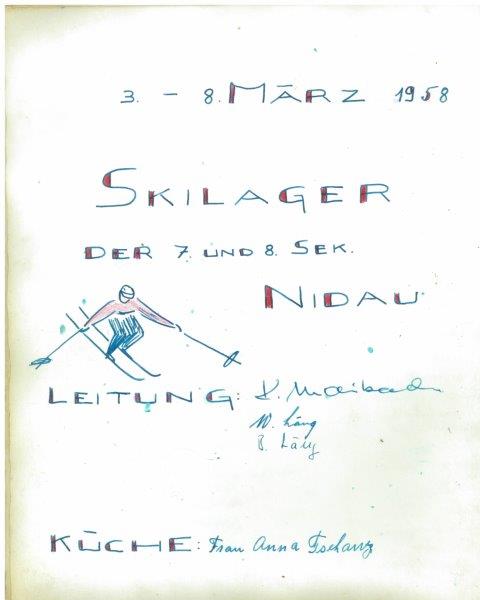 3. – 8. MÄRZ 1958
SKILAGER
DER 7. UND 8. SEK.
NIDAU
LEITUNG: Maibach
W. Läng
KÜCHE: Frau Anna Tschanz